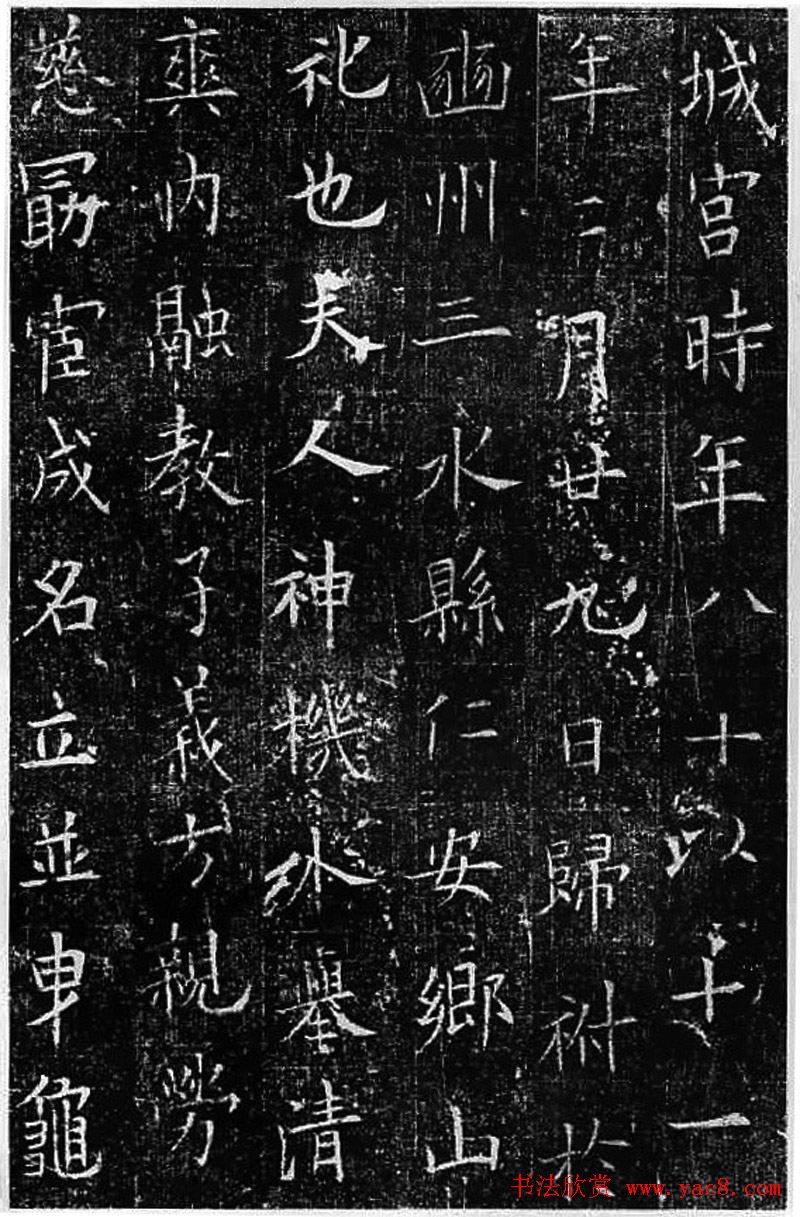 城宮時年八十以十一
年二月廿九日歸祔於
豳州三水縣仁安鄉山
祀也夫人神機外墓清
爽內融教子義方親勞
慈勗宦成名立並申龜
书法欣赏 www.yac8.com